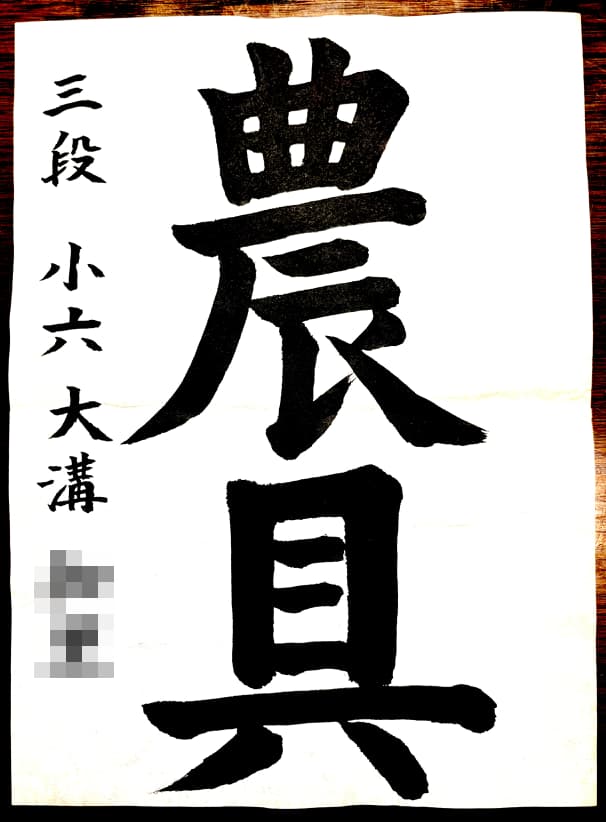 農具
三段 小六 大溝